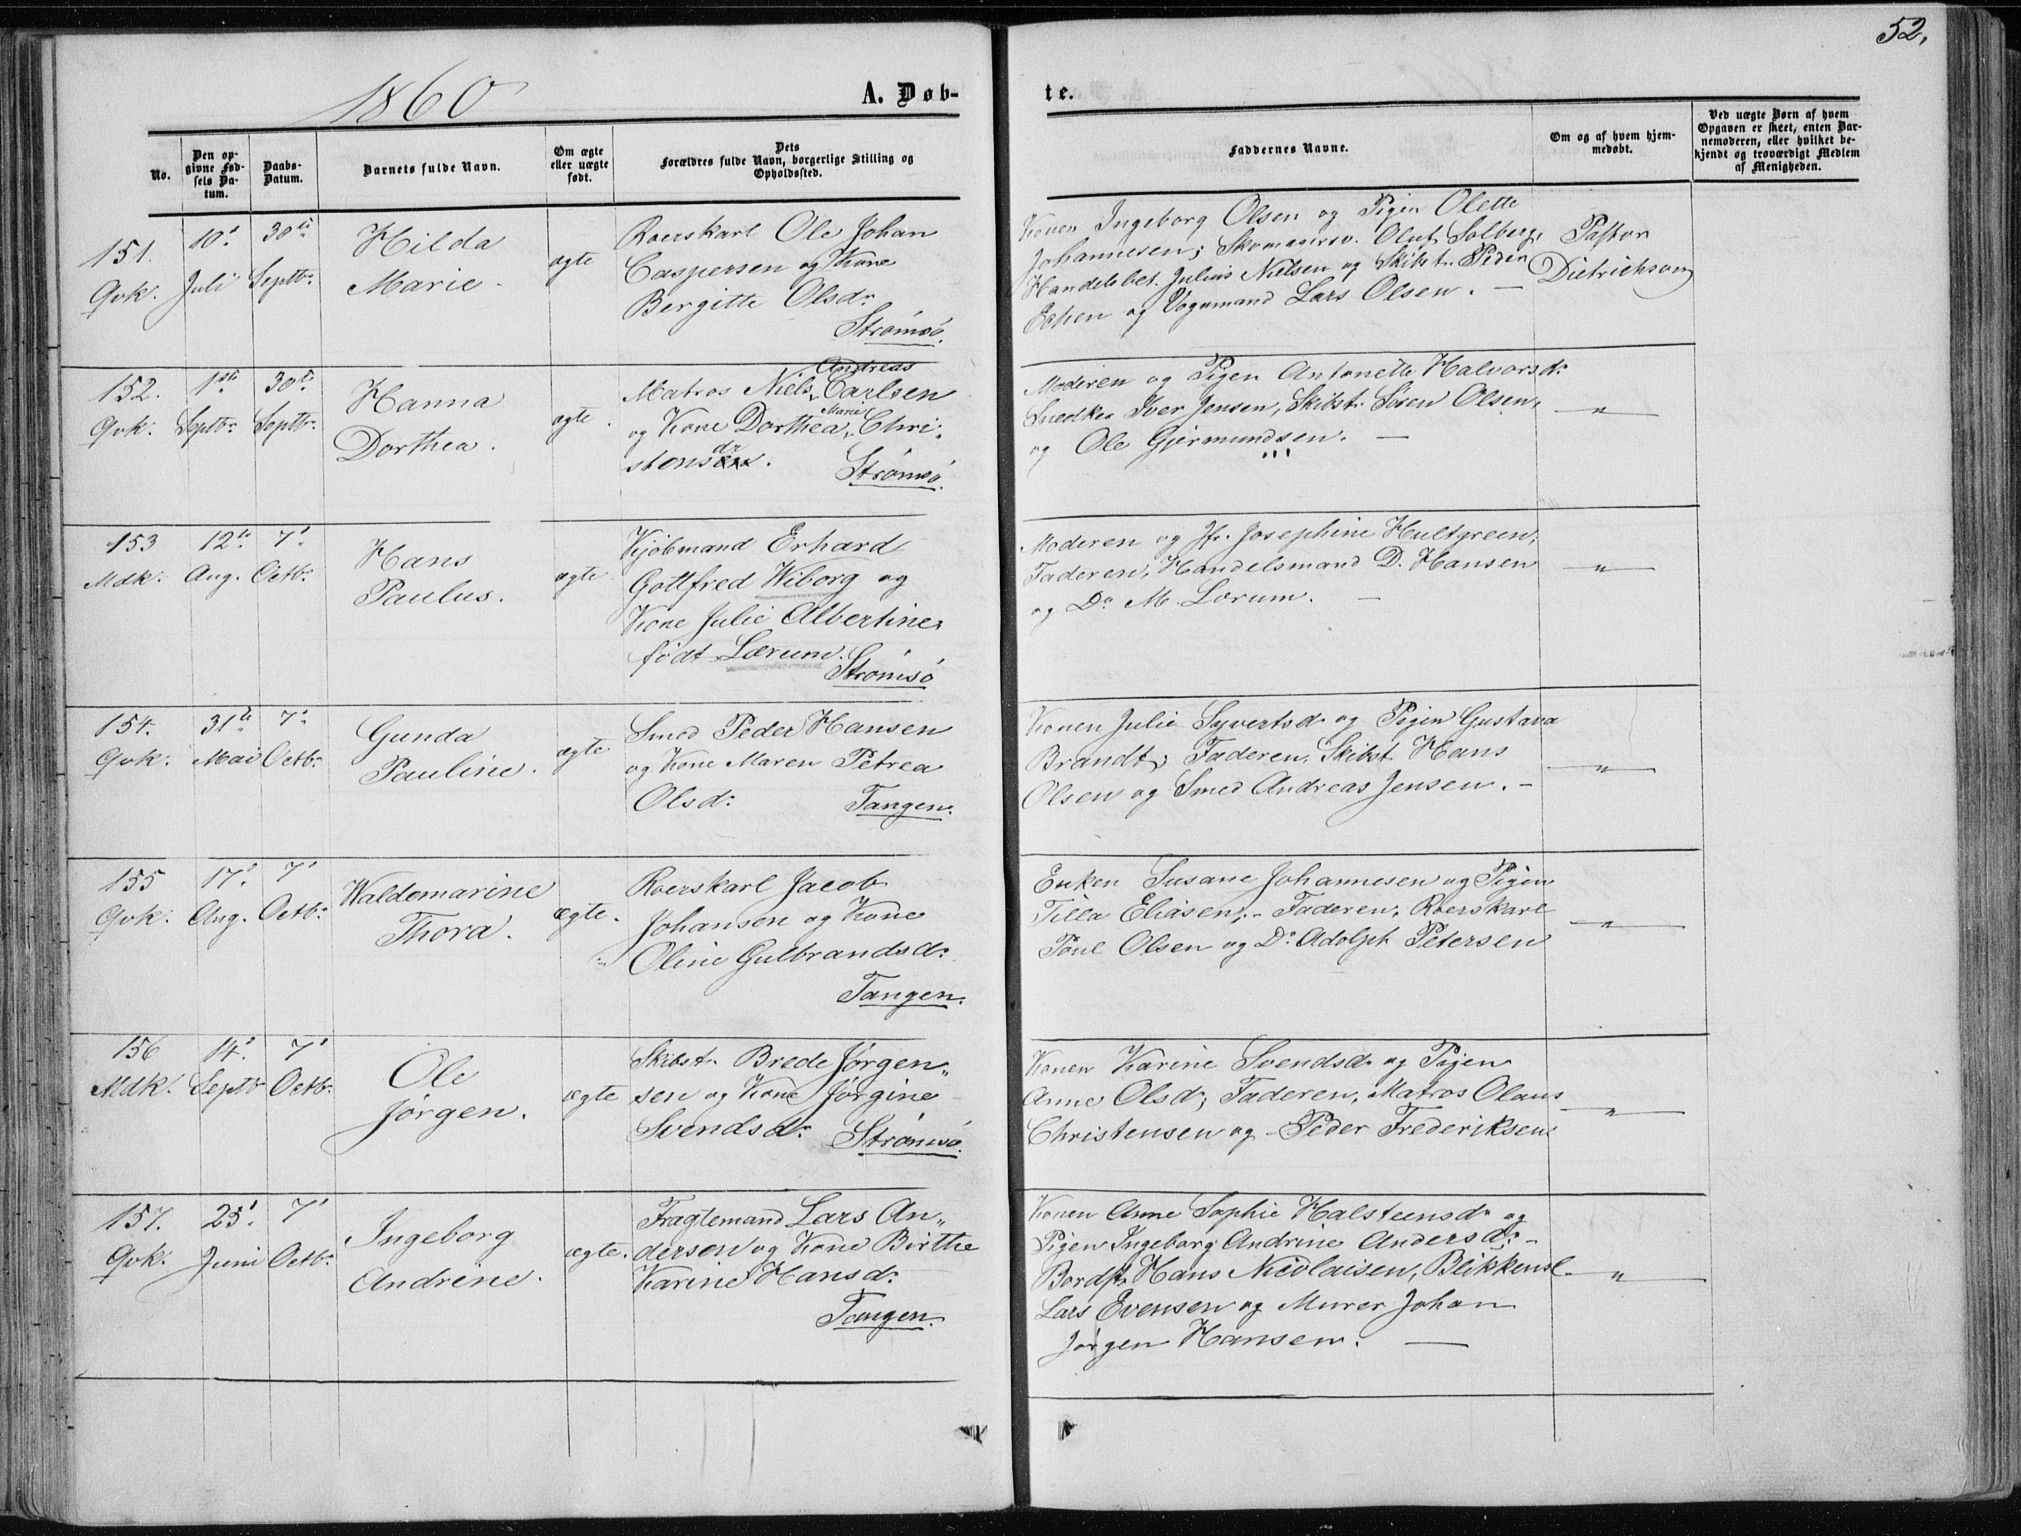 52.
1860
A. Døb-
te.
No.
Den op-
givne Fød-
sels Da-
tum.
Daabs-
Datum.
Barnets fulde Navn.
Om ægte
eller uægte
født.
Dets
Forældres fulde Navn, borgerlige Stilling og
Opholdssted.
Faddernes Navne.
Om og af hvem hjem-
medøbt.
Ved uægte Børn af hvem
Opgaven er skeet, enten Bar-
nemoderen, eller hvilket be-
kjendt og troværdigt Medlem
af Menigheden.
151.
Qvk.
10'
Juli
30te
Septbr.
Hilda
Marie.
ægte
Roerskarl Ole Johan
Caspersen og Kone
Bergitte Olsdr
Strømsø.
Konen Ingeborg Olsen og Pigen Olette
Johannesen; Skomagersv. Oluf Solberg,
Handelsbet. Julius Nielsen og Skibst. Peder
og Vognmand Lars Olsen. —
Pastor
Dietrichson
152.
Qvk.
1ste
Septbr.
30te
Septbr.
Hanna
Dorthea.
ægte.
Andreas
Matros Niels Carlsen
Marie
og Kone Dorthea Chri-
stensdr.
Strømsø.
Moderen og Pigen Antonette Halvorsdr
Snedker Iver Jensen, Skibst. Søren Olsen,
og Ole Gjermundsen. —
— " —
153
Mdk.
12te
Aug.
7'
Octbr.
Hans
Paulus.
ægte
Kjøbmand Erhard
Gottfred Wiborg og
Kone Julie Albertine,
født Lærum.
Strømsø
Moderen og Jfr. Josephine Hultgreen,
Faderen, Handelsmand D. Hansen
og Do M. Lorum. —
— " —
154.
Qvk.
31te
Mai
7'
Octbr.
Gunda
Pauline.
ægte
Smed Peder Hansen
og Kone Maren Petrea
Olsdr
Tangen.
Konen Julie Syvertsdr og Pigen Gustava
Brandt; Faderen, Skibst. Hans
Olsen og Smed Andreas Jensen. —
— " —
155
Qvk.
17'
Aug.
7'
Octbr.
Waldemarine
Thora.
ægte.
Roerskarl Jacob
Johansen og Kone
Oline Gulbrandsdr
Tangen.
Enken Susane Johannesen og Pigen
Tilla Eliasen; - Faderen, Roerskarl
Poul Olsen og Do Adolph Petersen
— " —
156
Mdk.
14'
Septbr
7'
Octbr.
Ole
Jørgen.
ægte
Skibst. Brede Jørgen-
sen og Kone Jørgine
Svendsdr
Strømsø.
Konen Karine Svendsdr og Pigen
Anne Olsdr; Faderen, Matros Olaus
Christensen og Peder Frederiksen
— " —
157.
Qvk.
25'
Juni
7'
Octbr.
Ingeborg
Andrine.
ægte.
Fragtemand Lars An-
dersen og Kone Birthe
Karine Hansdr
Tangen.
Konen Anne Sophie Halsteensdr og
Pigen Ingeborg Andrine Andersdr —
Bordst. Hans Nicolaisen, Blikkensl.
Lars Evensen og Murer Johan
Jørgen Hansen. —
— " —